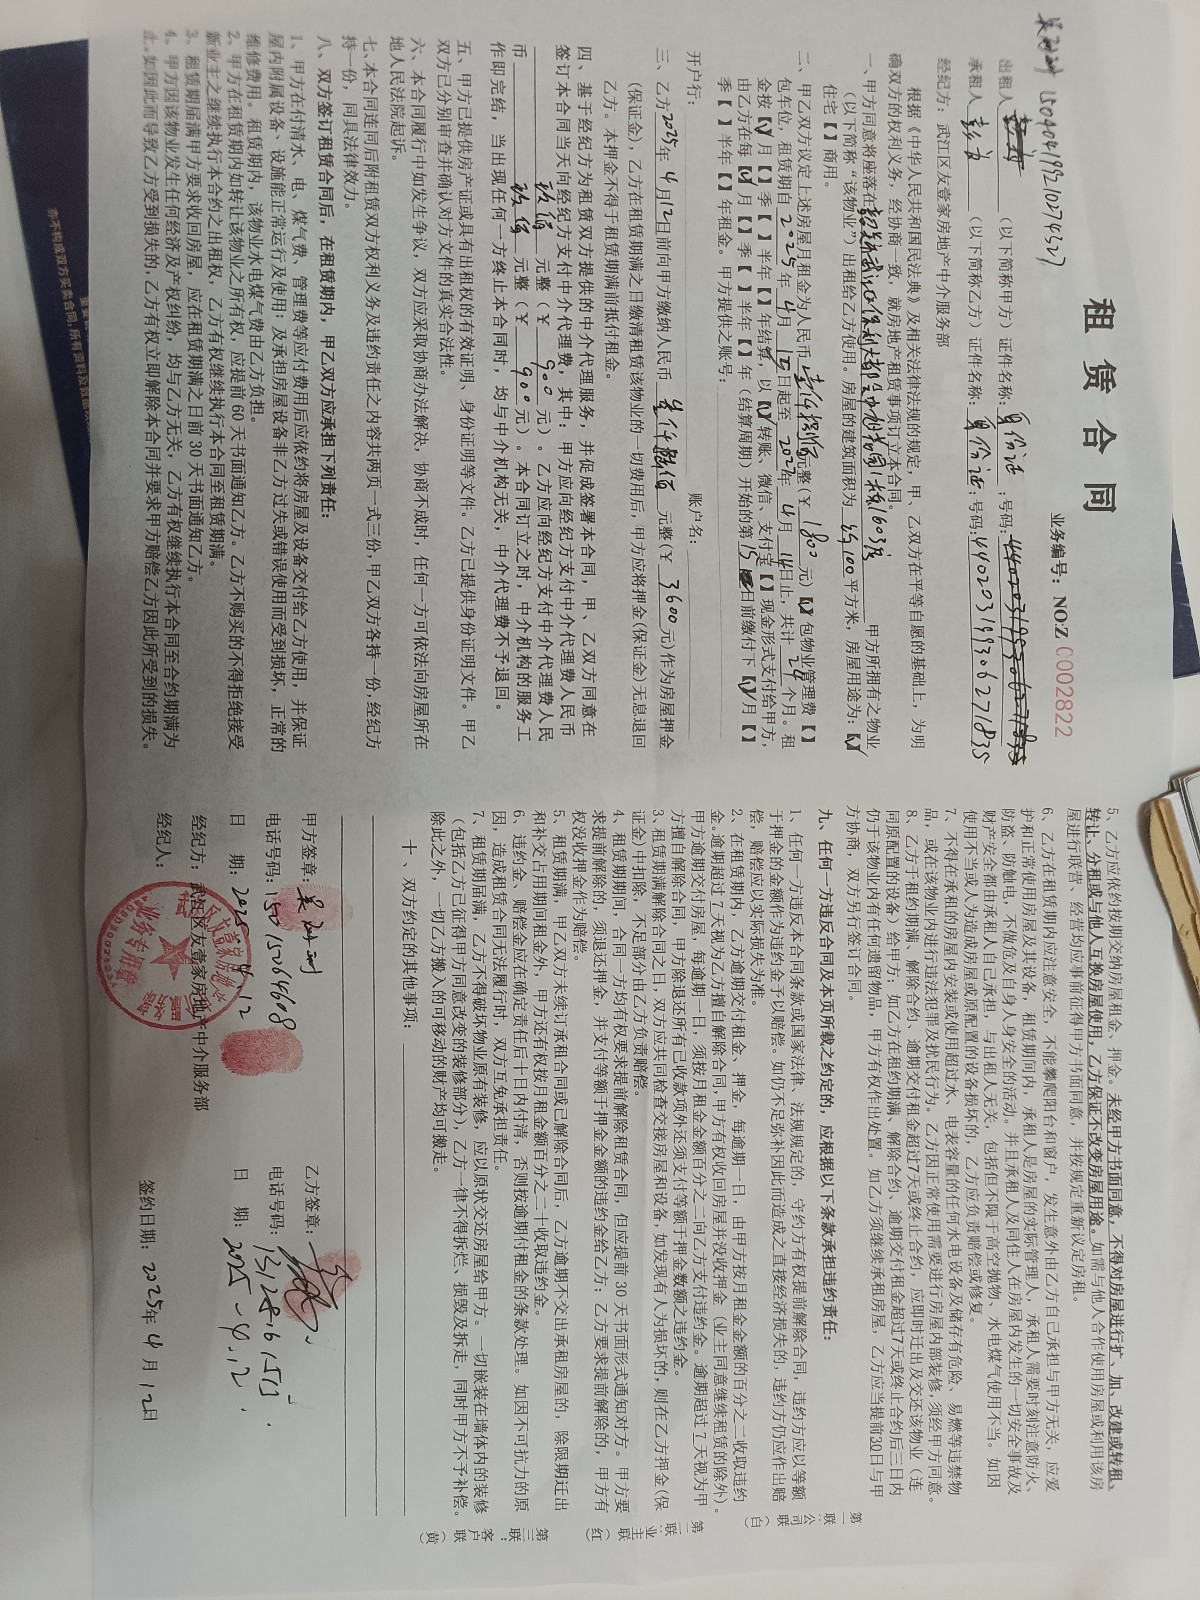 租赁合同
业务编号：NO:Z 0002822
出租人 （以下简称甲方）证件名称：身份证 ;号码:
承租人 （以下简称乙方）证件名称：身份证 ;号码:440203199306271835
经纪方：武江区友壹家房地产中介服务部
根据《中华人民共和国民法典》及相关法律法规的规定，甲、乙双方在平等自愿的基础上，为明
确双方的权利义务，经协商一致，就房地产租赁事项订立本合同。
一、甲方同意将座落在 1603房 甲方所拥有之物业
（以下简称“该物业”）出租给乙方使用。房屋的建筑面积为 约100 平方米，房屋用途为：【√】
住宅【 】商用。
二、甲乙双方议定上述房屋月租金为人民币 壹仟捌佰 元整（￥ 1800 元）【√】包物业管理费【 】
包车位，租赁期自 2025 年 4 月 15 日起至 年 4 月 14 日止，共计 24 个月。租
金按【√】月【 】季【 】半年【 】年结算，以【√】转账、微信、支付宝【 】现金形式支付给甲方，
由乙方在每【√】月【 】季【 】半年【 】年（结算周期）开始的第 15 日前缴付下【√】月【 】
季【 】半年【 】年租金。甲方提供之账号：
开户行： 账户名：
三、乙方 2025 年 4 月 12 日前向甲方缴纳人民币 叁仟陆佰 元整（￥ 3600 元）作为房屋押金
（保证金），乙方在租赁期满之日缴清租赁该物业的一切费用后，甲方应将押金（保证金）无息退回
乙方。本押金不得于租赁期满前抵付租金。
四、基于经纪方为租赁双方提供的中介代理服务，并促成签署本合同，甲、乙双方同意在
签订本合同当天向经纪方支付中介代理费，其中：甲方应向经纪方支付中介代理费人民币
玖佰 元整（￥ 900 元）。乙方应向经纪方支付中介代理费人民
币 玖佰 元整（￥ 900 元）。本合同订立之时，中介机构的服务工
作即完结，当出现任何一方终止本合同时，均与中介机构无关，中介代理费不予退回。
五、甲方已提供房产证或具有出租权的有效证明、身份证明等文件。乙方已提供身份证明文件。甲乙
双方已分别审查并确认对方文件的真实合法性。
六、本合同履行中如发生争议，双方应采取协商办法解决，协商不成时，任何一方可依法向房屋所在
地人民法院起诉。
七、本合同连同后附租赁双方权利义务及违约责任之内容共两页一式三份，甲乙双方各持一份，经纪方
持一份，同具法律效力。
八、双方签订租赁合同后，在租赁期内，甲乙双方应承担下列责任：
1、甲方在付清水、电、煤气费，管理费等应付费用后应依约将房屋及设备交付给乙方使用，并保证
屋内附属设备、设施能正常运行及使用；及承担房屋设备非乙方过失或错误使用而受到损坏，正常的
维修费用。租赁期内，该物业水电煤气费由乙方负担。
2、甲方在租赁期内如转让该物业之所有权，应提前 60 天书面通知乙方。乙方不购买的不得拒绝接受
新业主之继续执行本合约之出租权，乙方有权继续执行本合同至租赁期满。
3、租赁期届满甲方要求收回房屋，应在租赁期满之日前 30 天书面通知乙方。
4、甲方因该物业发生任何经济及产权纠纷，均与乙方无关，乙方有权继续执行本合同至合约期满为
止。如因此而导致乙方受到损失的，乙方有权立即解除本合同并要求甲方赔偿乙方因此所受到的损失。
5、乙方应依约按期交纳房屋租金、押金。未经甲方书面同意，不得对房屋进行扩、加、改建或转租、
转让、分租或与他人互换房屋使用，乙方保证不改变房屋用途。如需与他人合作使用房屋或利用该房
屋进行联营、经营均应事前征得甲方书面同意，并按规定重新议定房租。
6、乙方在租赁期内应注意安全，不能攀爬阳台和窗户，发生意外由乙方自己承担与甲方无关，应爱
护和正常使用房屋及其设备，租赁期间内，承租人是房屋的实际管理人，承租人需要时刻注意防火、
防盗、防触电，不做危及自身人身安全的活动。并且承租人及同住人在房屋内发生的一切安全事故及
财产安全都由承租人自己承担，与出租人无关，包括但不限于高空抛物、水电煤气使用不当。如因
使用不当或人为造成房屋或原配置的设备损坏的，乙方应负责赔偿或修复。
7、不得在承租的房屋内安装或使用超过水、电表容量的任何水电设备及储存有危险、易燃等违禁物
品，或在该物业内进行违法犯罪及扰民行为。乙方因正常使用需要进行房屋内部装修，须经甲方同意。
8、乙方于租约期满、解除合约、逾期交付租金超过7天或终止合约，应即时迁出及交还该物业（连
同原配置的设备）给甲方；如乙方在租约期满、解除合约、逾期交付租金超过7天或终止合约后三日内
仍于该物业内有任何遗留物品，甲方有权作出处置。如乙方须继续承租房屋，乙方应当提前30日与甲
方协商，双方另行签订合同。
九、任何一方违反合同及本页所载之约定的，应根据以下条款承担违约责任：
1、任何一方违反本合同条款或国家法律、法规规定的，守约方有权提前解除合同，违约方应以等额
于押金的金额作为违约金予以赔偿。如仍不足弥补因此而造成之直接经济损失的，违约方仍应作出赔
偿，赔偿应以实际损失为准。
2、在租赁期内，乙方逾期交付租金、押金，每逾期一日，由甲方按月租金金额的百分之二收取违约
金。逾期超过 7 天视为乙方擅自解除合同，甲方有权收回房屋并没收押金（业主同意继续租赁的除外）。
甲方逾期交付房屋，每逾期一日，须按月租金金额百分之二向乙方支付违约金。逾期超过 7 天视为甲
方擅自解除合同，甲方除退还所有已收款项外还须支付等额于押金数额之违约金。
3、租赁期满解除合同之日，双方应共同检查交接房屋和设备，如发现有人为损坏的，则在乙方押金（保
证金）中扣除，不足部分由乙方负责赔偿。
4、租赁期期间，合同一方均有权要求提前解除租赁合同，但应提前 30 天书面形式通知对方。甲方要
求提前解除的，须退还押金，并支付等额于押金金额的违约金给乙方；乙方要求提前解除的，甲方有
权没收押金作为赔偿。
5、租赁期满，甲乙双方未续订承租合同或已解除合同后，乙方逾期不交出承租房屋的，除限期迁出
和补交占用期间租金外，甲方还有权按月租金额百分之二十收取违约金。
6、违约金、赔偿金应在确定责任后十日内付清，否则按逾期付租金的条款处理。如因不可抗力的原
因，造成租赁合同无法履行时，双方互免承担责任。
7、租赁期届满，乙方不得破坏物业原有装修，应以原状交还房屋给甲方。一切嵌装在墙体内的装修
（包括乙方已征得甲方同意改变的装修部分），乙方一律不得拆烂、损毁及拆走，同时甲方不予补偿。
除此之外，一切乙方搬入的可移动的财产均可搬走。
十、双方约定的其他事项：
甲方签章： 乙方签章：
电话号码：15015064668 电话号码：
日 期：2025.4.12 日 期：2025-4.12.
经纪方：武江区友壹家房地产中介服务部
经纪人： 签约日期：2025年4月12日
第一联：公司（白）
第二联：业主（红）
第三联：客户（黄）